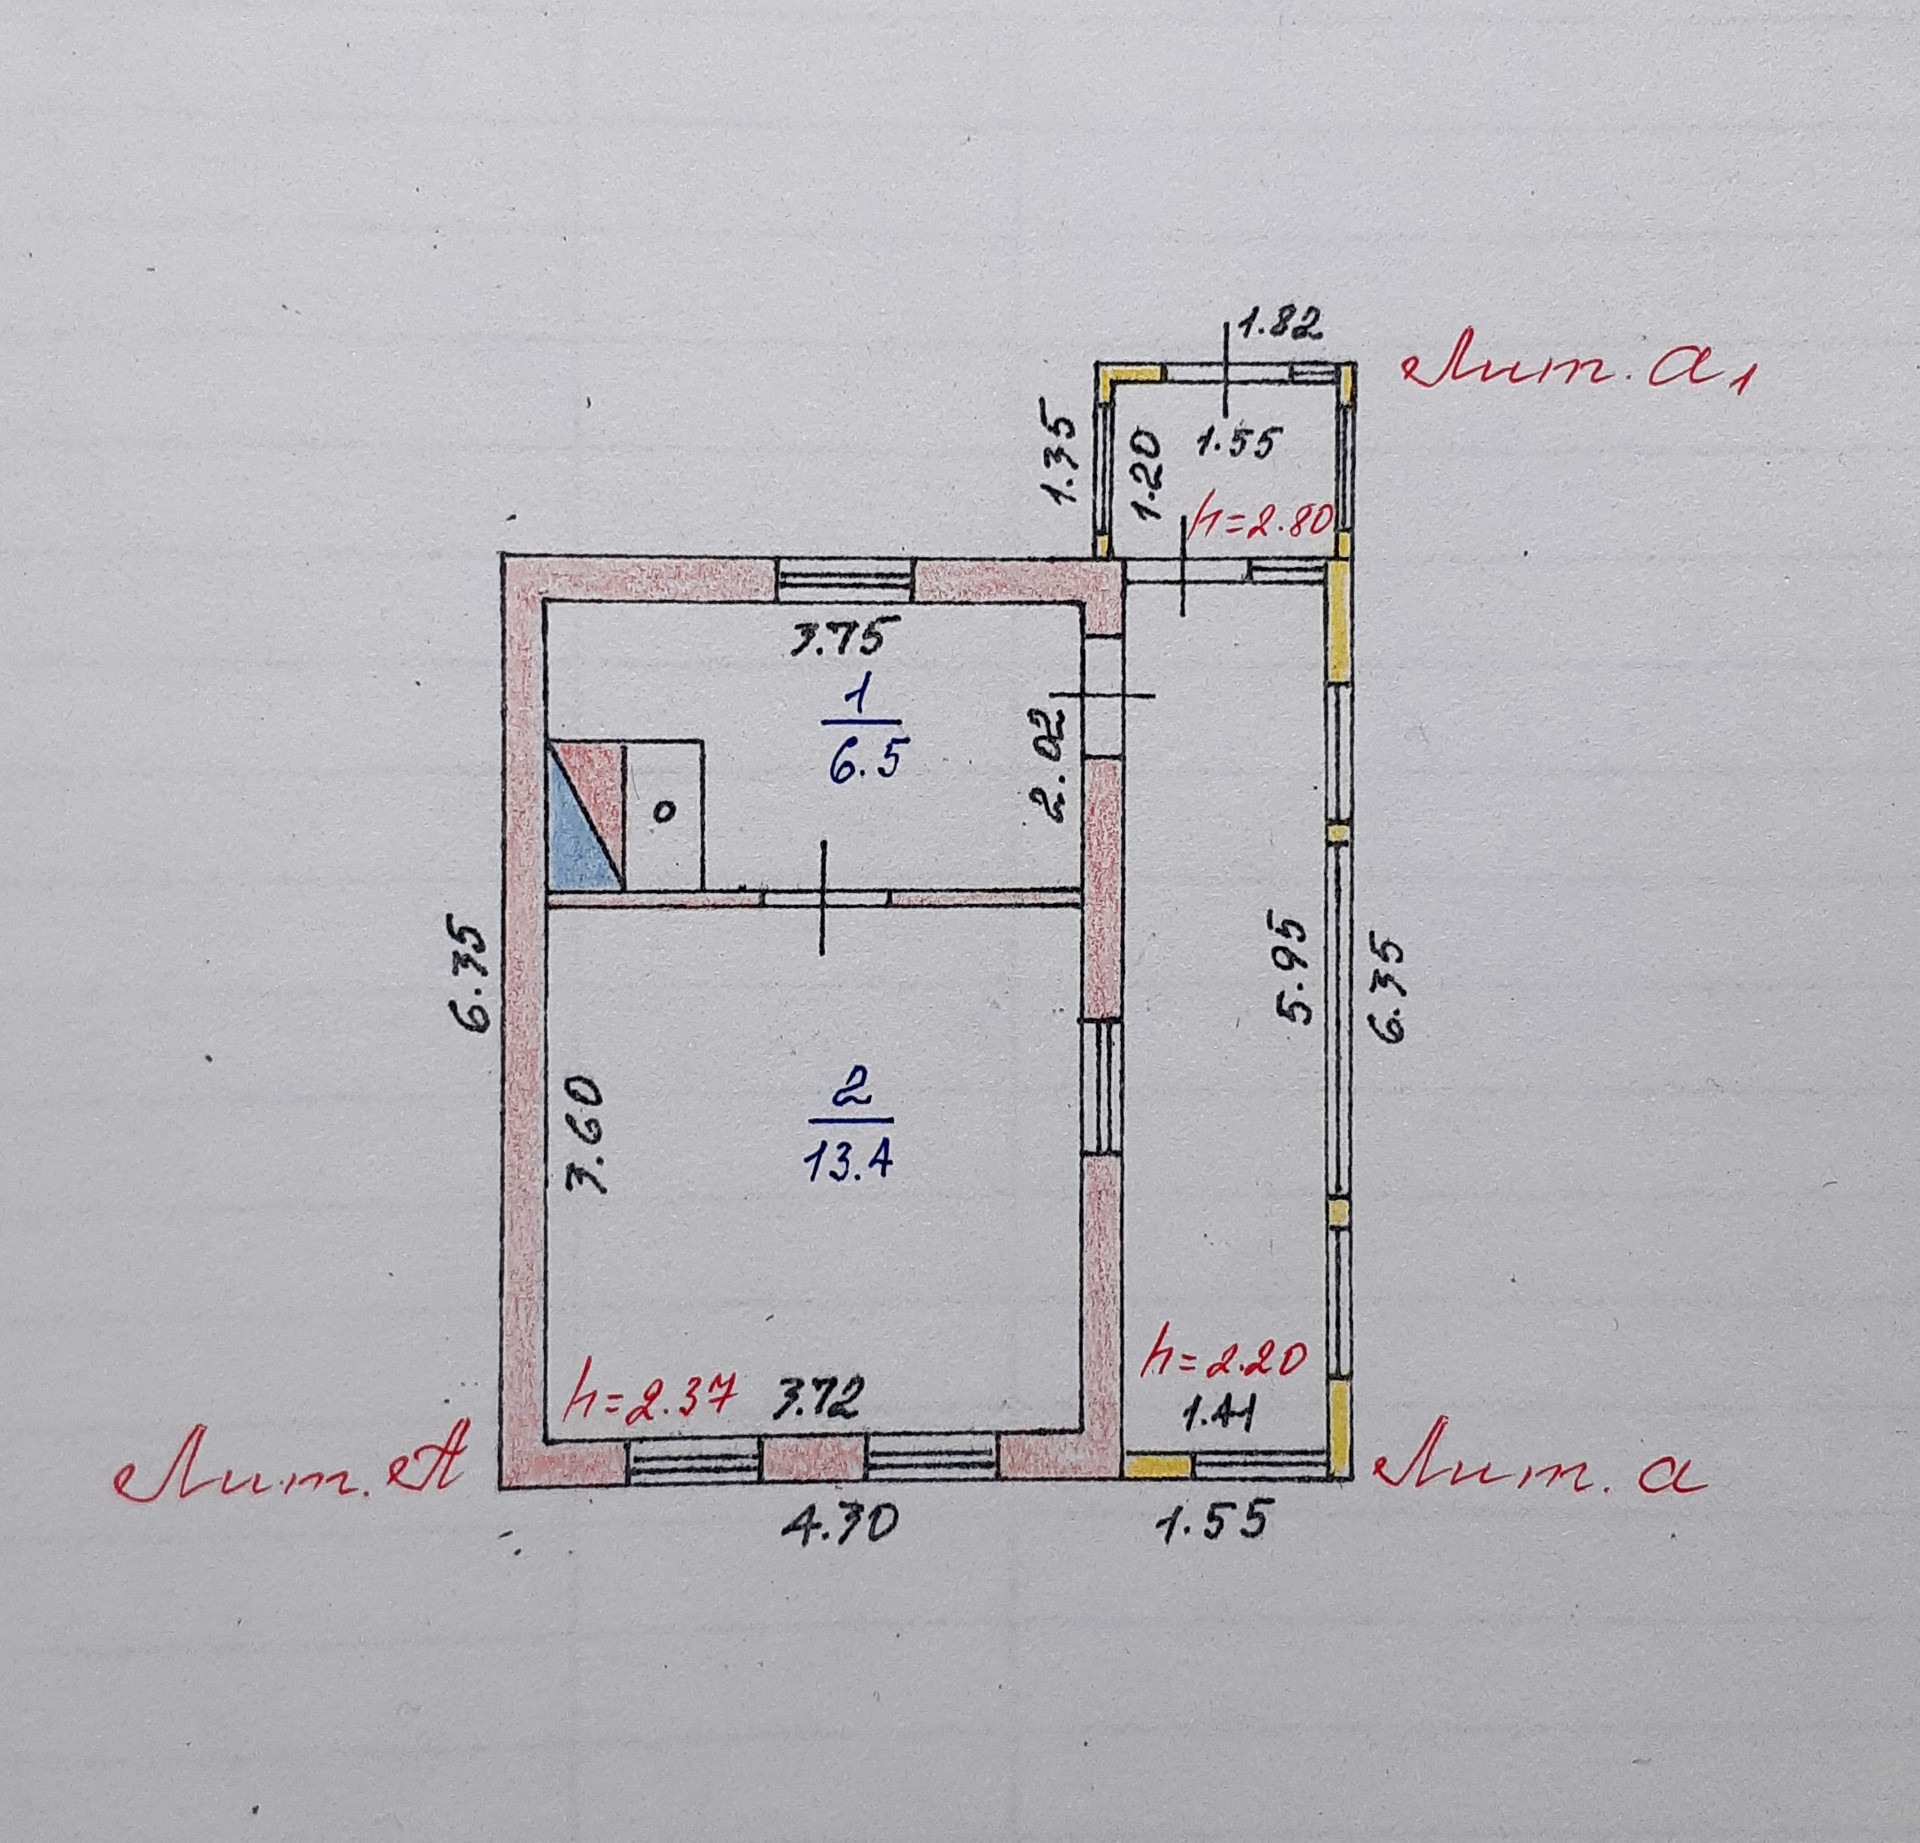 1.82
Лит. а1
1.35
1.20
1.55
h=2.80
3.75
1
6.5
2.02
6.35
3.60
2
13.4
5.95
6.35
h=2.37
3.72
h=2.20
1.41
Лит. А
Лит. а
4.30
1.55